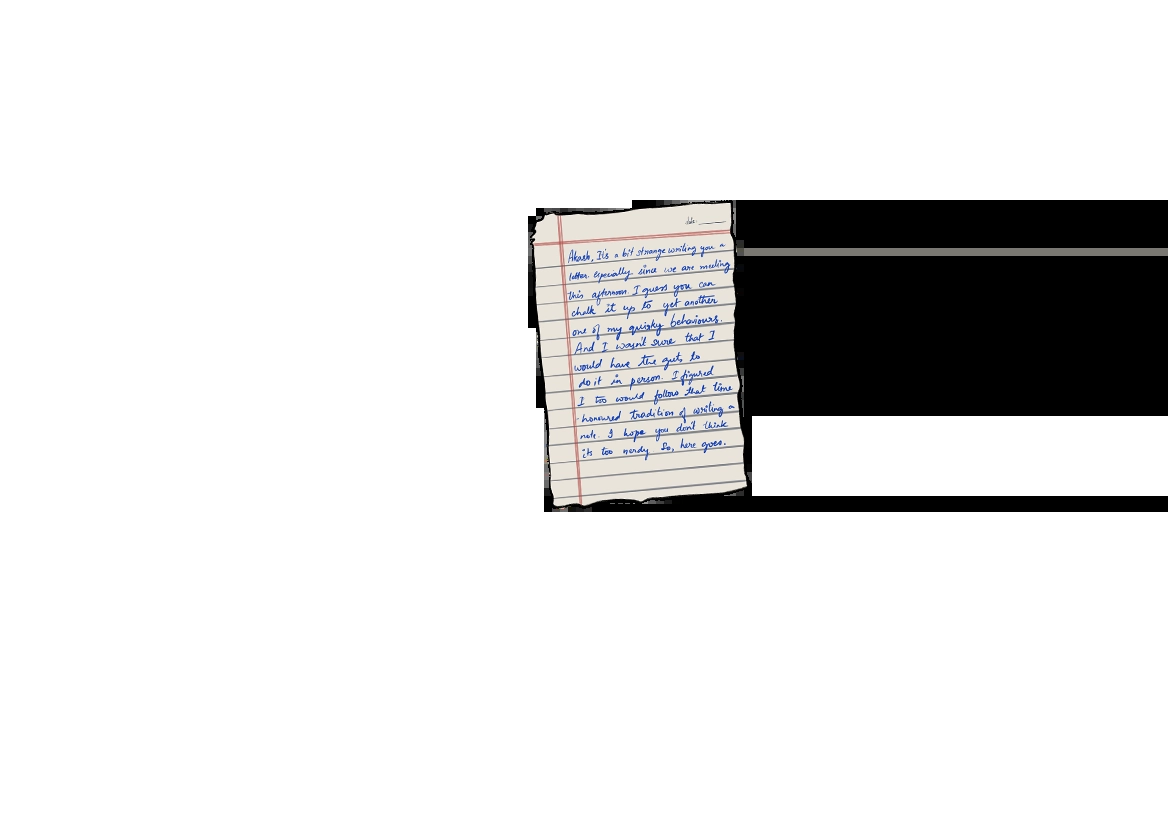 date:
Akash, It's a bit strange writing you a
letter. Especially since we are meeting
this afternoon. I guess you can
chalk it up to yet another
one of my quirky behaviours.
And I wasn't sure that I
would have the guts to
do it in person. I figured
I too would follow that time
honoured tradition of writing a
note. I hope you don't think
its too nerdy. So, here goes.